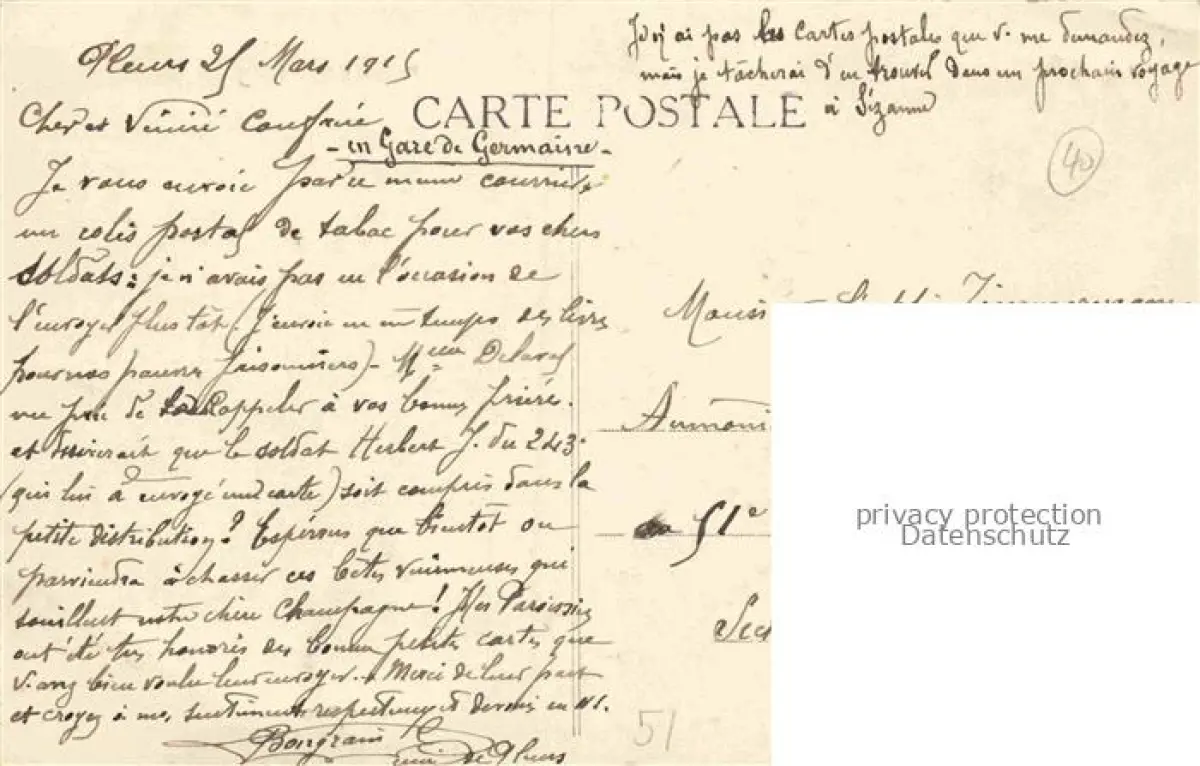 Pleurs 25 Mars 1915
J'n'ai pas les cartes postales que v. me demandez,
mais je tâcherai d'en trouver dans un prochain voyage
à Sézanne
CARTE POSTALE
Cher et Vénéré Confrère
- en Gare de Germaine -
40
Je vous envoie par ce même courrier
un colis postal de tabac pour vos chers
soldats: je n'avais pas eu l'occasion de
l'envoyer plus tôt. (J'envoie en m temps des livres
pour nos pauvres prisonniers) - Delaval
me prie de la Rappeler à vos bonnes prières.
et désirerait que le soldat Herbert J. du 243
(qui lui a envoyé une carte) soit compris dans la
petite distribution? Espérons que bientôt on
parviendra à chasser ces bêtes venimeuses qui
souillent notre chère Champagne! Mes Paroissiens
ont été très honorés des bonnes petites cartes que
v. avez bien voulu leur envoyer. Merci de leur part
et croyez à mes sentiments respectueux et dévoués en NS.
Bongrain
curé de Pleurs
Aumôni
51e
51
privacy protection
Datenschutz